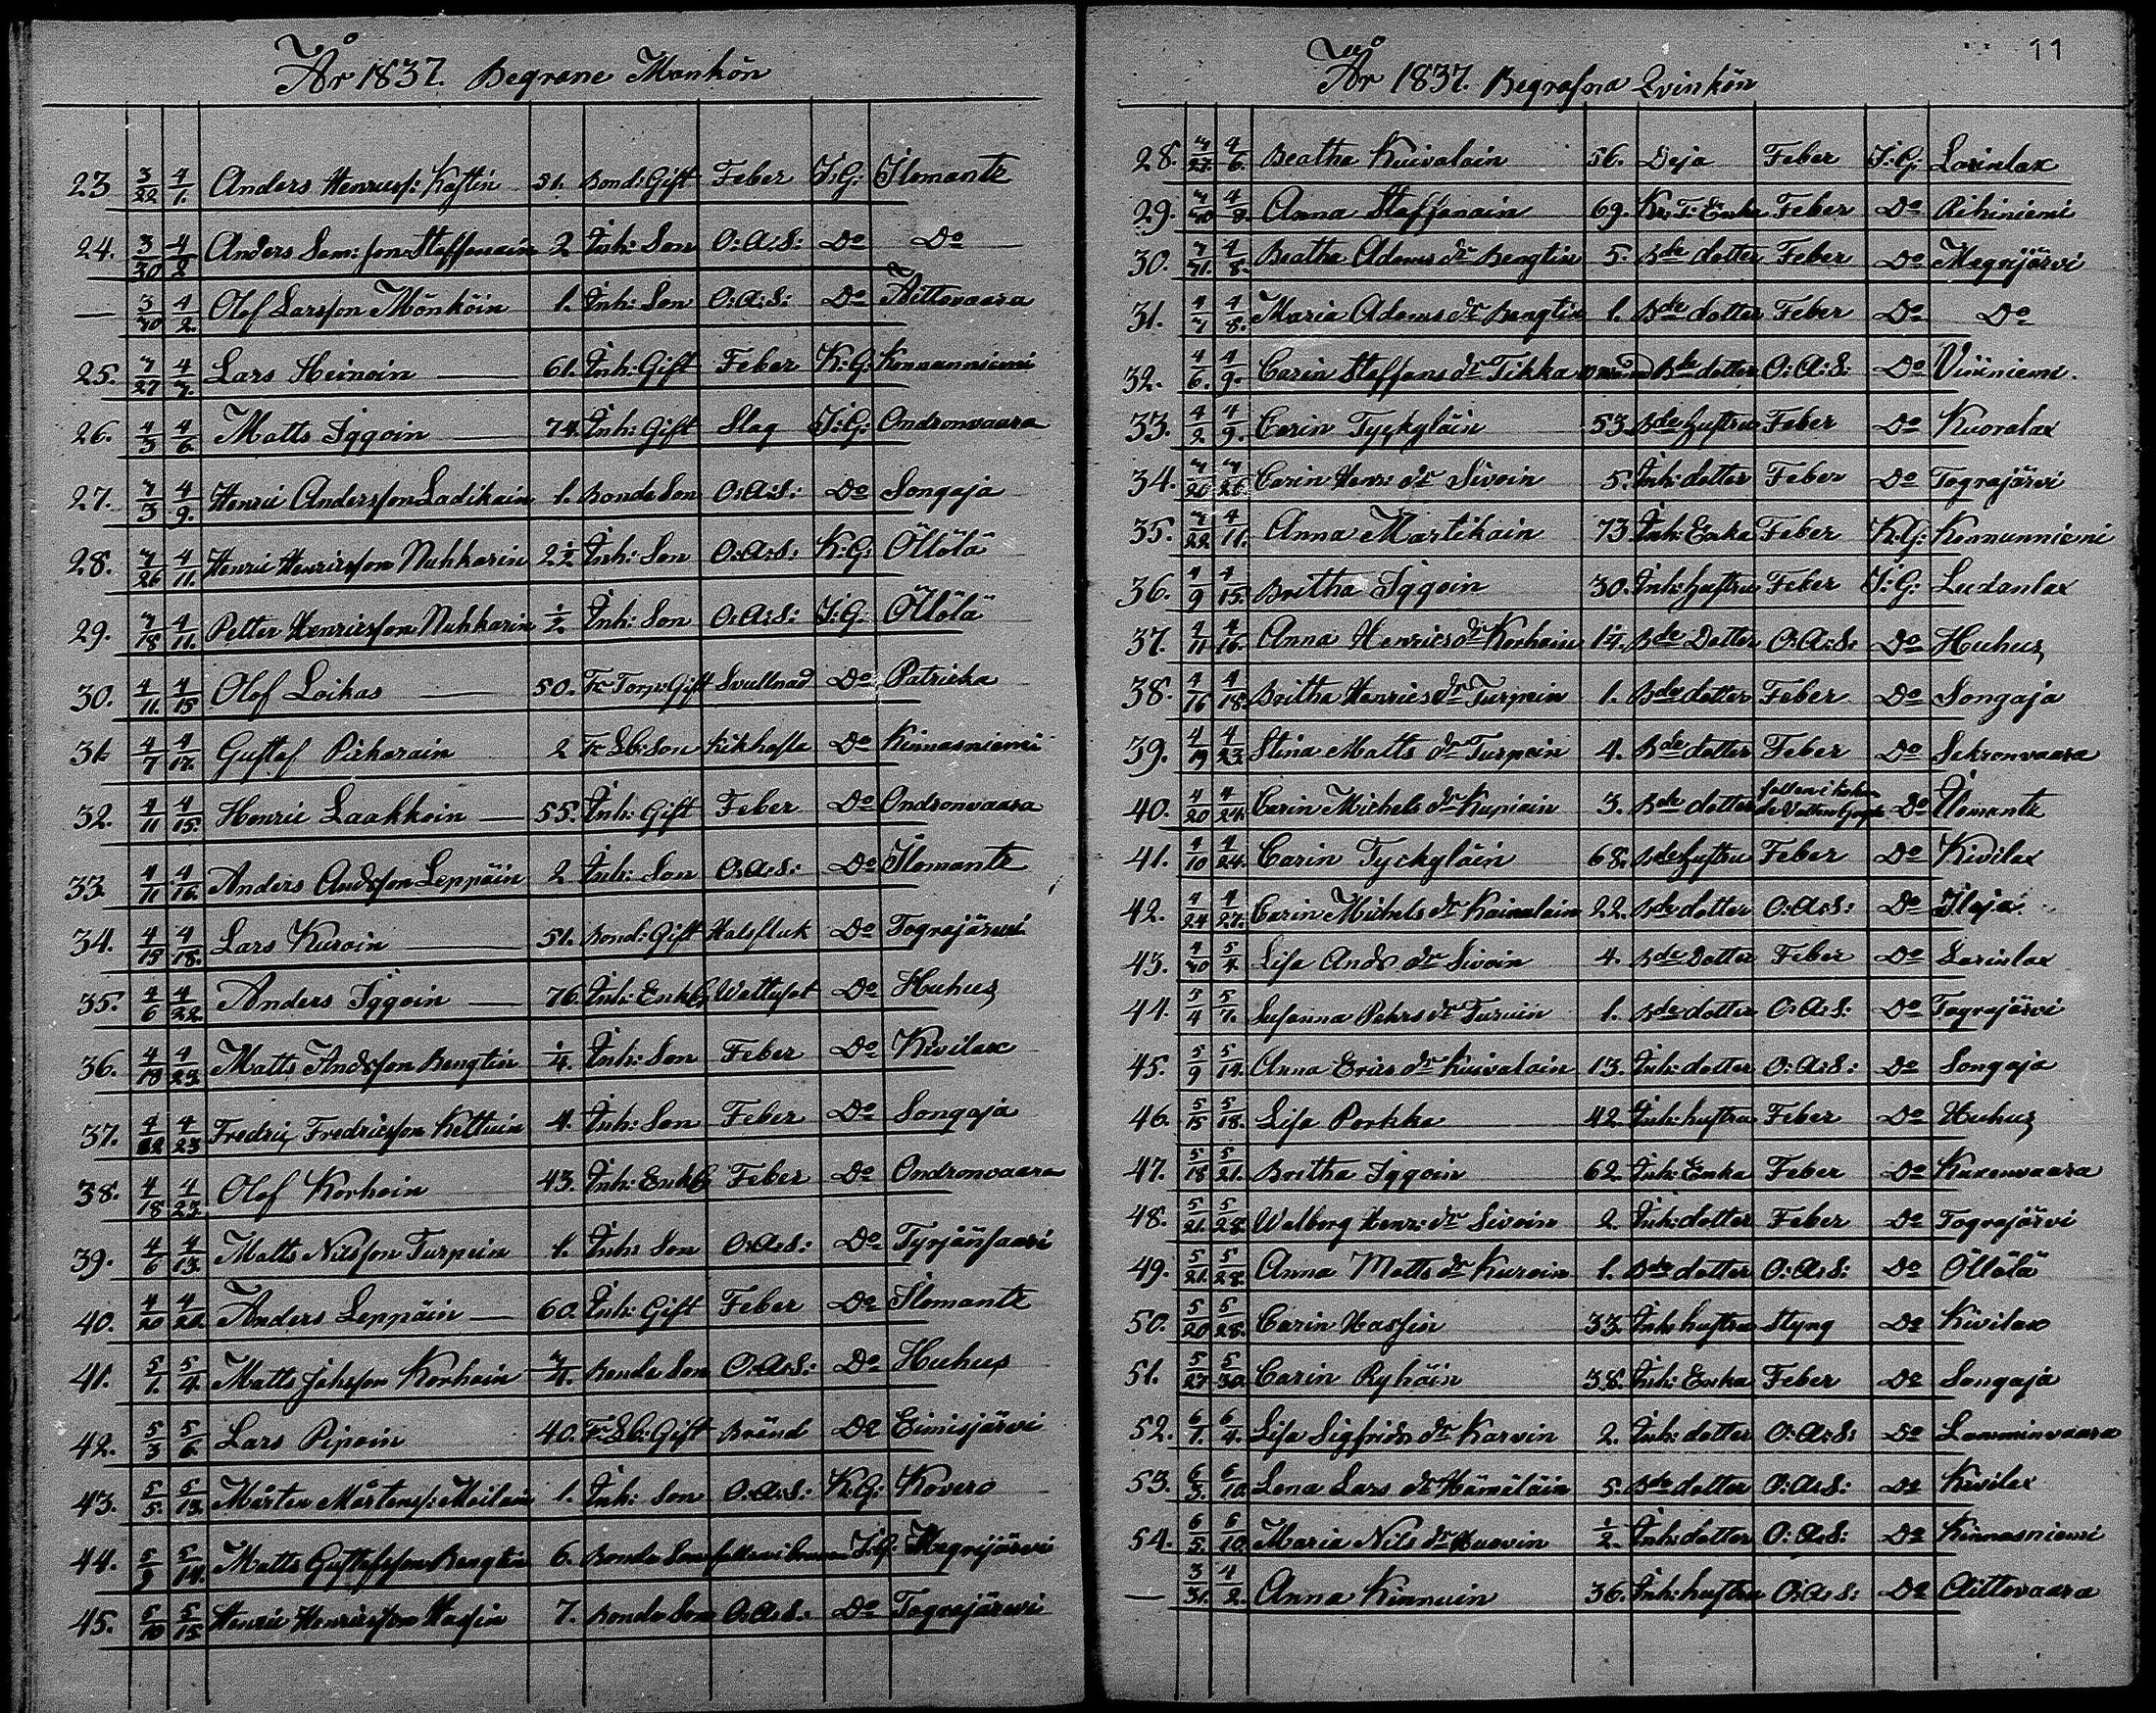 År 1837. Begrane Mankön
23 3/22 4/1. Anders Henricsf: Kastin 51. Bond: Gift Feber I:G: Ilomantz
24. 3/30 4/2. Anders Sam: son Staffanain 2 Inh: Son O:A:S: Do Do
— 3/30 4/2. Olof Larsson Mönköin 1. Inh: Son O:A:S: Do Aittovaara
25. 3/27 4/7. Lars Heinoin — 61. Inh: Gift Feber K:G: Konnanniemi
26. 4/3 4/6. Matts Iggoin — 74. Inh: Gift Slag I:G: Ondronvaara
27. 4/3 4/9. Henric Andersson Ladikain 1. Bonde Son O:A:S: Do Songaja
28. 3/26 4/11. Henric Henricsson Nuhkarin 2 1/2 Inh: Son O:A:S: K:G: Öllölä
29. 3/18 4/11. Petter Henricsson Nuhkarin 1/2. Inh: Son O:A:S: I:G: Öllölä
30. 4/11. 4/15 Olof Loikas — 50. Fc Torp: Gift Svullnad Do Patricka
31. 4/7 4/17. Gustaf Pirharain 2 Fc Sb: Son Kikhosta Do Kinnasniemi
32. 4/11 4/15. Henric Laakkoin — 55. Inh: Gift Feber Do Ondronvaara
33. 4/11 4/16. Anders Andsson Leppäin 2 Inh: Son O:A:S: Do Ilomantz
34. 4/15 4/18. Lars Kuroin — 51. Bond: Gift Halsfluk Do Tograjärvi
35. 4/6 4/22. Anders Iggoin — 76. Inh: Enkl Wattusot Do Huhus
36. 4/18 4/23. Matts Andsson Bengtin 1/4. Inh: Son Feber Do Kivilax
37. 4/22 4/23 Fredric Fredricsson Kettuin 4. Inh: Son Feber Do Songaja
38. 4/18 4/23. Olof Korhoin 43. Inh: Enkl Feber Do Ondronvaara
39. 4/6 4/13. Matts Nilsson Turpein 1. Inh: Son O:A:S: Do Tyrjänsaari
40. 4/20 4/28. Anders Leppäin — 60. Inh: Gift Feber Do Ilomantz
41. 5/1. 5/4. Matts Johsson Korhoin 3/4. Bonde Son O:A:S: Do Huhus
42. 5/3 5/6. Lars Pipoin 40. Fc Sb: Gift Bränd Do Eimisjärvi
43. 5/5. 5/13. Mårten Mårtensf: Meilain 1. Inh: Son O:A:S: K:G: Kovero
44. 5/9 5/14. Matts Gustafsson Bengtin 6. Bonde Son fallen i brunn I:G: Megrijärvi
45. 5/10 5/15 Henric Henricsson Hassin 7. Bonde Son O:A:S: Do Tograjärvi
11
År 1837. Begrafna Qvinkön
28. 3/27. 4/6. Beatha Kuivalain 56. Deja Feber I:G: Larinlax
29. 3/30 4/8. Anna Staffanain 69. Kr: T: Enka Feber Do Rihiniemi
30. 3/31. 4/8. Beatha Adams dr Bengtin 5. Bde dotter Feber Do Megrijärvi
31. 4/3 4/8. Maria Adams dr Bengtin 1. Bde dotter Feber Do Do
32. 4/6. 4/9. Carin Staffans dr Tikka Bde dotter O:A:S: Do Viiniemi.
33. 4/2. 4/9. Carin Tyckyläin 53. Bde hustru Feber Do Kuoralax
34. 3/20 3/26. Carin Henr: dr Sivoin 5. Inh: dotter Feber Do Tograjärvi
35. 3/22 4/11. Anna Martikain 73. Inh: Enka Feber K:G: Konnunniemi
36. 4/9 4/15. Britha Iggoin 30. Inh: hustru Feber I:G: Ludanlax
37. 4/11 4/16. Anna Henrics dr Korhoin 1/4. Bde Dotter O:A:S: Do Huhus
38. 4/16 4/18. Britha Henrics dr Turpein 1. Bde dotter Feber Do Songaja
39. 4/19 4/23. Stina Matts dr Turpein 4. Bde dotter Feber Do Sekronvaara
40. 4/20 4/24. Carin Michels dr Kupiain 3. Bde dotter fallen i kokande Vatten Do Ilomantz
41. 4/10 4/24. Carin Tyckyläin 68. Bde hustru Feber Do Kivilax
42. 4/24 4/27. Carin Michels dr Kainulain 22. Bde dotter O:A:S: Do Ilaja
43. 4/30 5/4. Lisa Ands dr Sivoin 4. Bde Dotter Feber Do Larinlax
44. 5/4 5/7. Susanna Pehrs dr Turuin 1. Bde dotter O:A:S: Do Tograjärvi
45. 5/9 5/14. Anna Erics dr Kuivalain 13. Inh: dotter O:A:S: Do Songaja
46. 5/15 5/18. Lisa Porkka 42. Inh: hustru Feber Do Huhus
47. 5/18 5/21. Britha Iggoin 62. Inh: Enka Feber Do Kuxenvaara
48. 5/21. 5/28. Walborg Henr: dr Sivoin 2. Inh: dotter Feber Do Tograjärvi
49. 5/21. 5/28. Anna Matts dr Kuroin 1. Bde dotter O:A:S: Do Öllölä
50. 5/20 5/28. Carin Hassin 33. Inh: hustru Styng Do Kivilax
51. 5/27 5/30. Carin Ryhäin 38. Inh: Enka Feber Do Songaja
52. 6/1. 6/4. Lisa Sigfrids dr Karvin 2. Inh: dotter O:A:S: Do Lamminvaara
53. 6/3. 6/10. Lena Lars dr Hämäläin 5. Bde dotter O:A:S: Do Kivilax
54. 6/5. 6/10. Maria Nils dr Huovin 1/2. Inh: dotter O:A:S: Do Kinnasniemi
— 3/31. 4/2. Anna Kinnuin 36. Inh: hustru O:A:S: Do Aittovaara